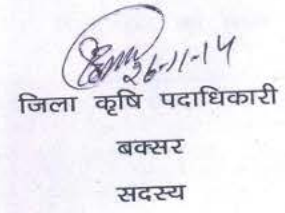 26-11-14
जिला कृषि पदाधिकारी
बक्सर
सदस्य